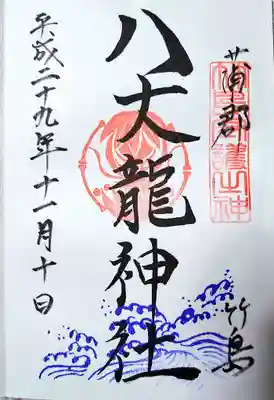 蒲郡
竹島
八大龍神社
平成二十九年十一月十日